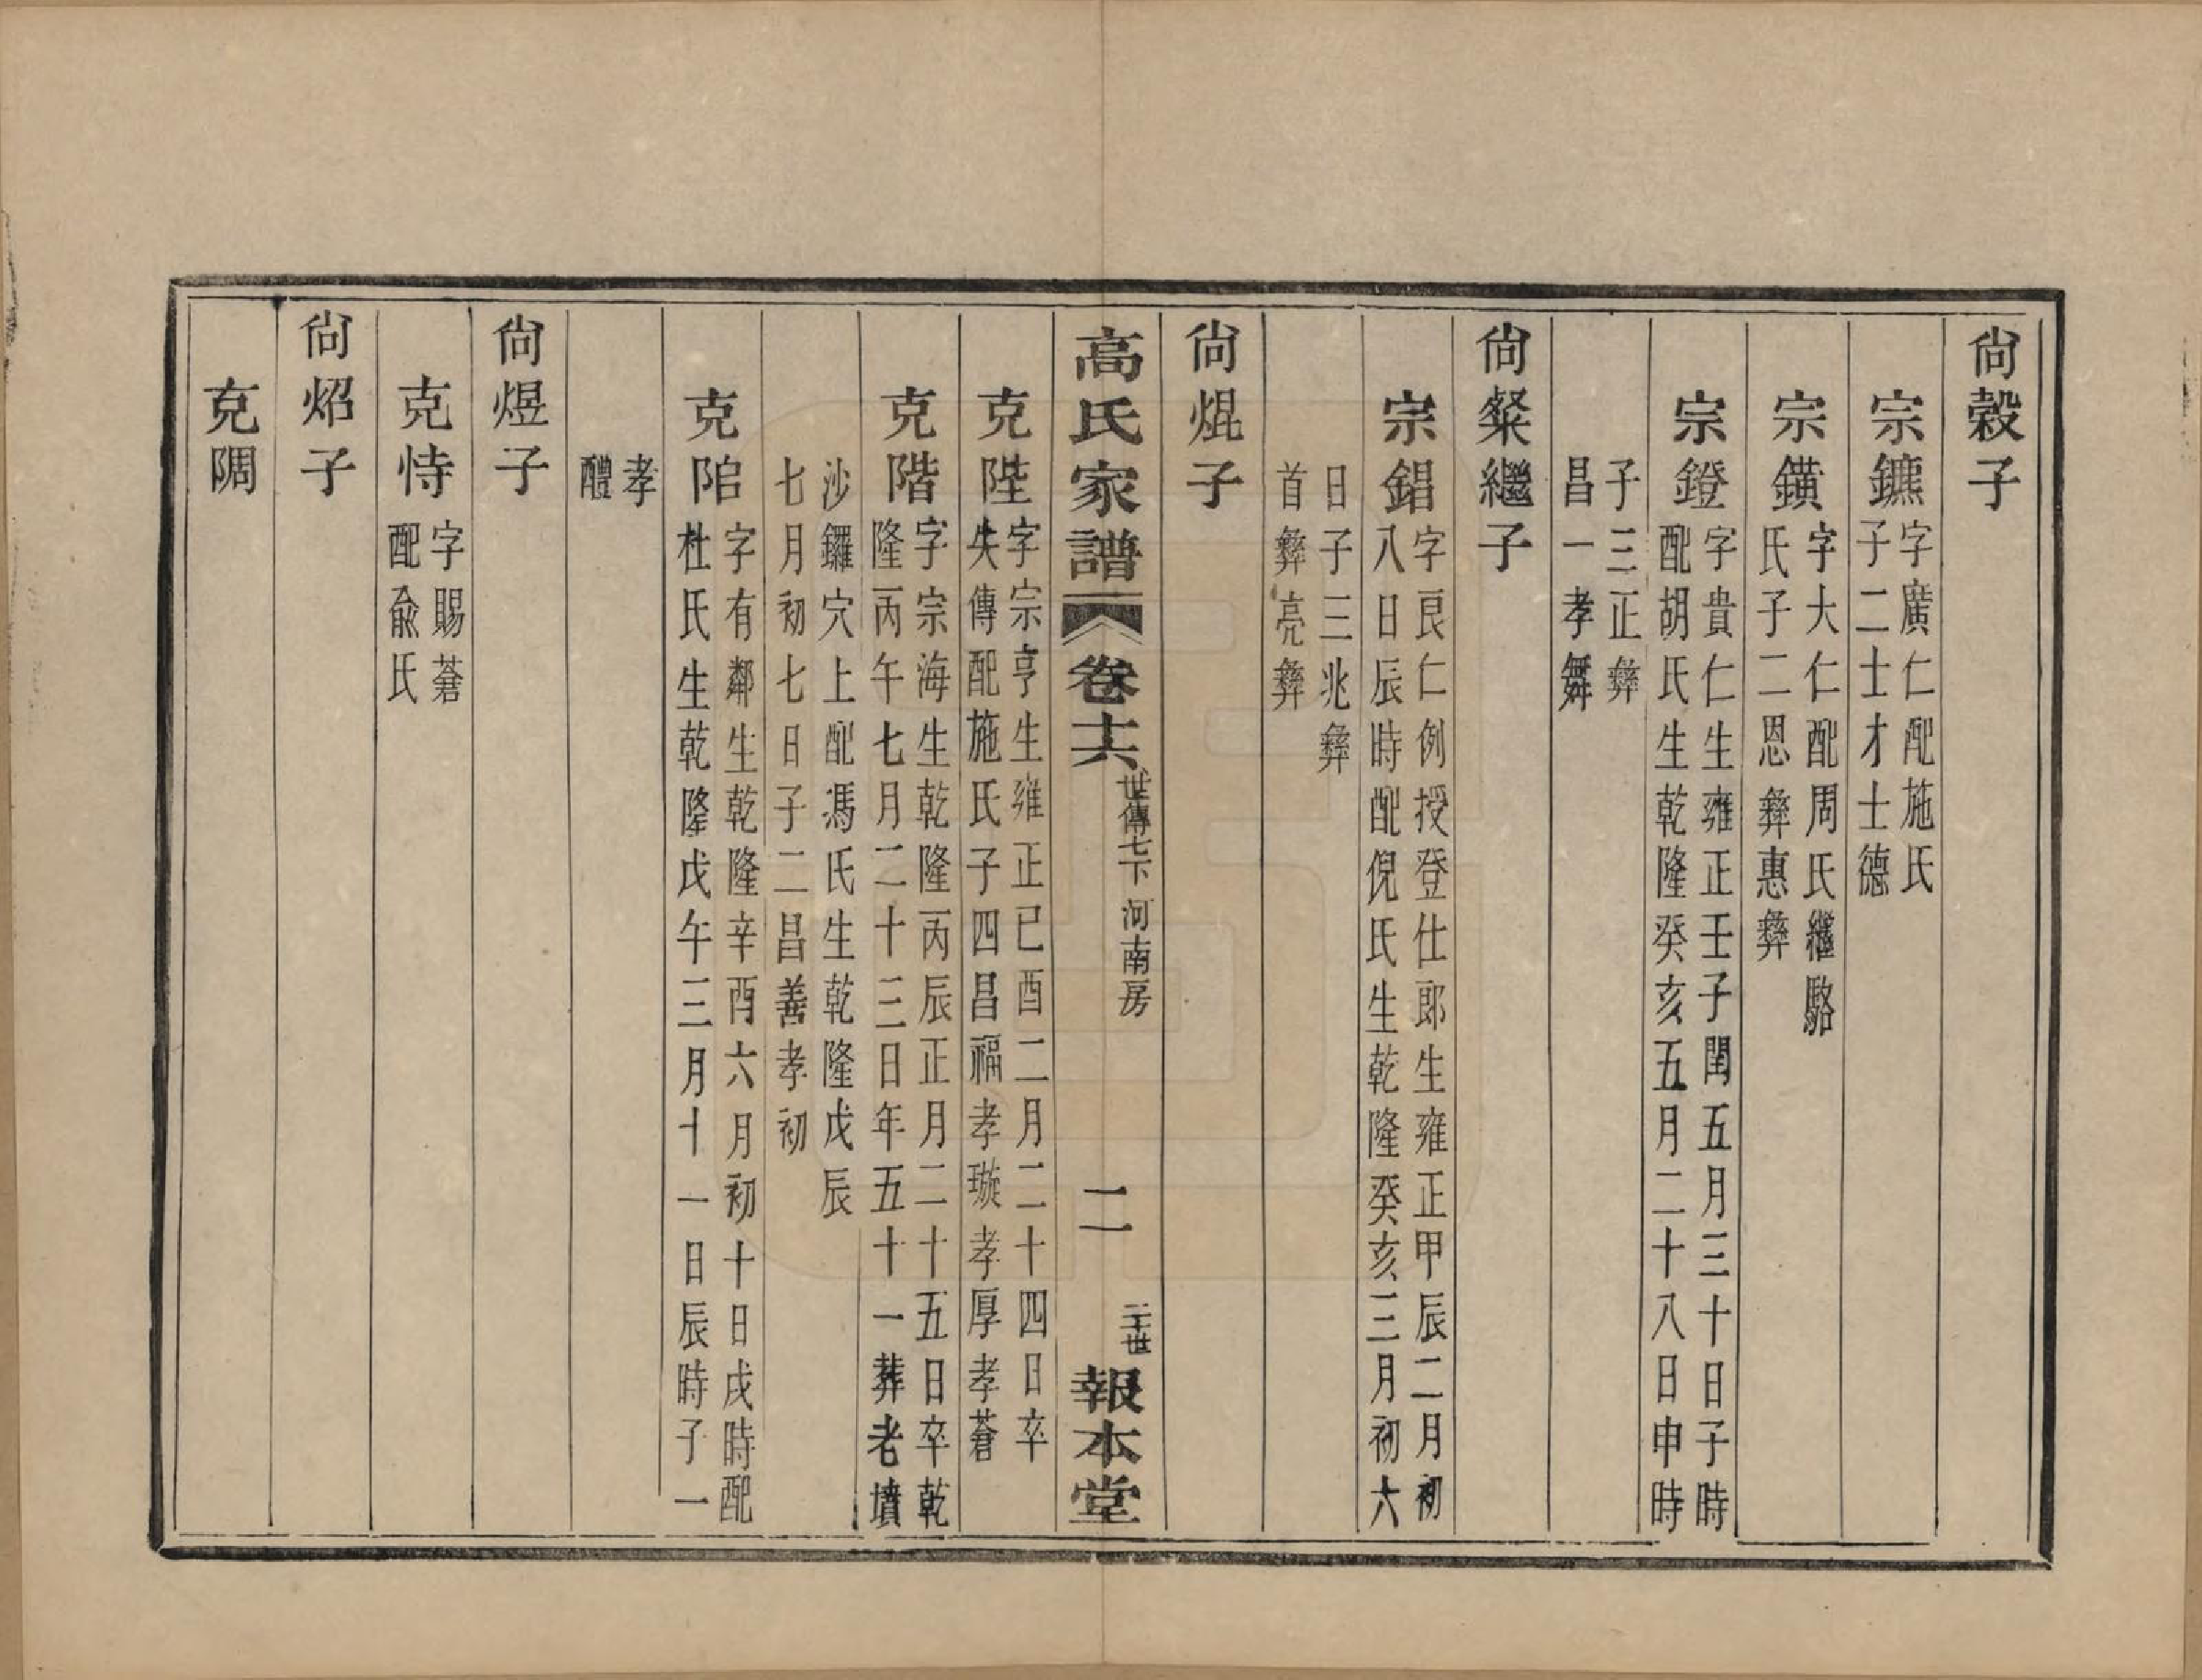 尙穀子
宗鑣字廣仁配施氏
子二士才士德
宗鐄字大仁配周氏繼駱
氏子二恩彝惠彝
宗鐙字貴仁生雍正壬子閏五月三十日子時
配胡氏生乾隆癸亥五月二十八日申時
子三正彝
昌一孝舞
尙粲繼子
宗錩字良仁例授登仕郎生雍正甲辰二月初
八日辰時配倪氏生乾隆癸亥三月初六
日子三兆彝
首彝亮彝
尙焜子
高氏家譜 卷十六 世傳七下 河南房 二 二十世 報本堂
克陛字宗亨生雍正已酉二月二十四日卒
失傳配施氏子四昌福孝璇孝厚孝蒼
克階字宗海生乾隆丙辰正月二十五日卒乾
隆丙午七月二十三日年五十一葬老墳
沙鑼穴上配馮氏生乾隆戊辰
七月初七日子二昌善孝初
克㫪字有鄰生乾隆辛酉六月初十日戌時配
杜氏生乾隆戊午三月十一日辰時子一
孝
醴
尙煜子
克恃字賜蒼
配兪氏
尙炤子
克㫪